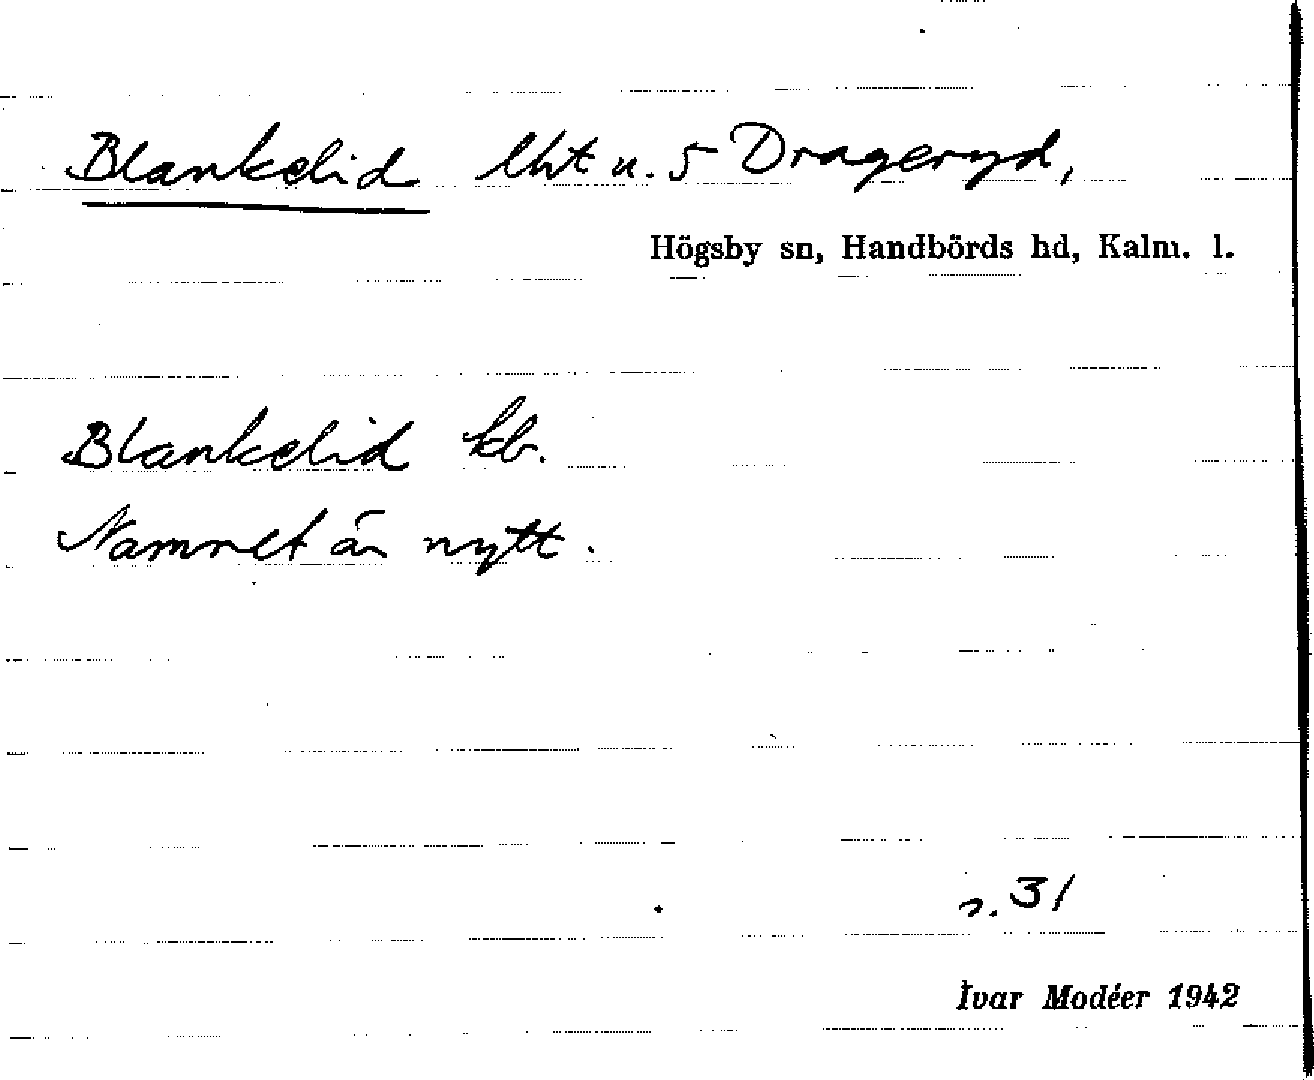 Blankelid lht u. 5 Drageryd,
Högsby sn, Handbörds hd, Kalm. l.
Blankelid kb.
Namnet är nytt.
s. 31
Ivar Modéer 1942